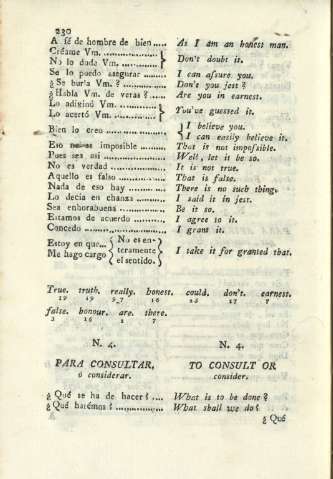 230
A fé de hombre de bien ..... As I am an honest man.
Créame Vm. ................ } Don't doubt it.
No lo duda Vm. ...........
Se lo puedo asegurar ........ I can assure you.
¿ Se burla Vm. ? ............. Don't you jest ?
¿ Habla Vm. de veras ? ..... Are you in earnest.
Lo adivinó Vm. ............ } You've guessed it.
Lo acertó Vm. ............
Bien lo creo ................ { I believe you.
I can easily believe it.
Eso es imposible ........ That is not impossible.
Pues sea asi ................ Well, let it be so.
No es verdad ............... It is not true.
Aquello es falso ............ That is false.
Nada de eso hay ........... There is no such thing.
Lo decia en chanza ......... I said it in jest.
Sea enhorabuena ............ Be it so.
Estamos de acuerdo ......... I agree to it.
Concedo .................... I grant it.
Estoy en que... { No es en-
teramente } I take it for granted that.
Me hago cargo { el sentido.
True. truth. really. honest. could. don't. earnest.
19 19 9_7 16 7
false. honour. are. there.
3 16 1 7
N. 4. N. 4.
PARA CONSULTAR, TO CONSULT OR
ó considerar. consider.
¿ Qué se ha de hacer ? .... What is to be done ?
¿ Qué harémos ? ............... What shall we do ?
¿ Qué